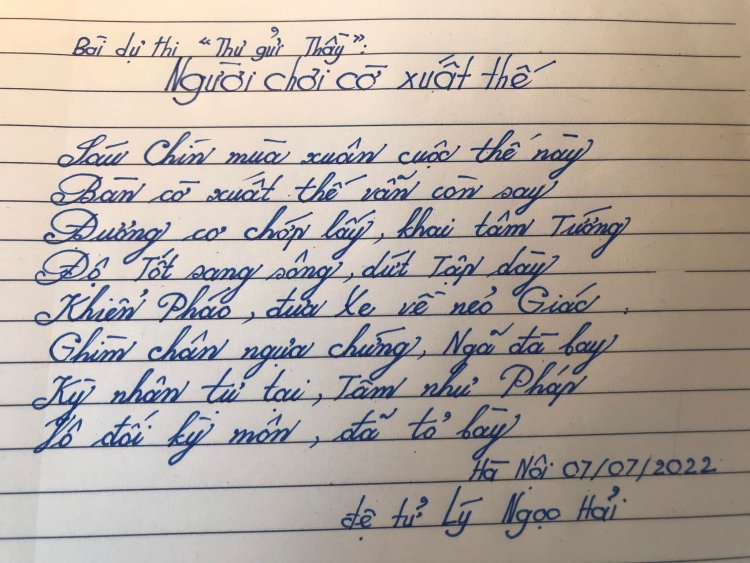 Bài dự thi "Thư gửi Thầy":
Người chơi cờ xuất thế
Sáu Chín mùa xuân cuộc thế này
Bàn cờ xuất thế vẫn còn say
Đương cơ chớp lấy, khai tâm Tướng
Độ Tốt sang sông, dứt Tập dày
Khiển Pháo, đưa Xe về nẻo Giác
Ghìm chân ngựa chứng, Ngã đà bay
Kỳ nhân tự tại, Tâm như Pháp
Vô đối kỳ môn, đã tỏ bày
Hà Nội 07/07/2022
đệ tử Lý Ngọc Hải